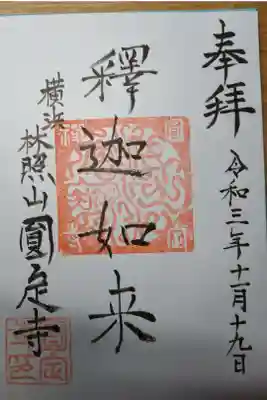 奉拝
令和三年十一月十九日
釋迦如来
横浜
林照山圓定寺